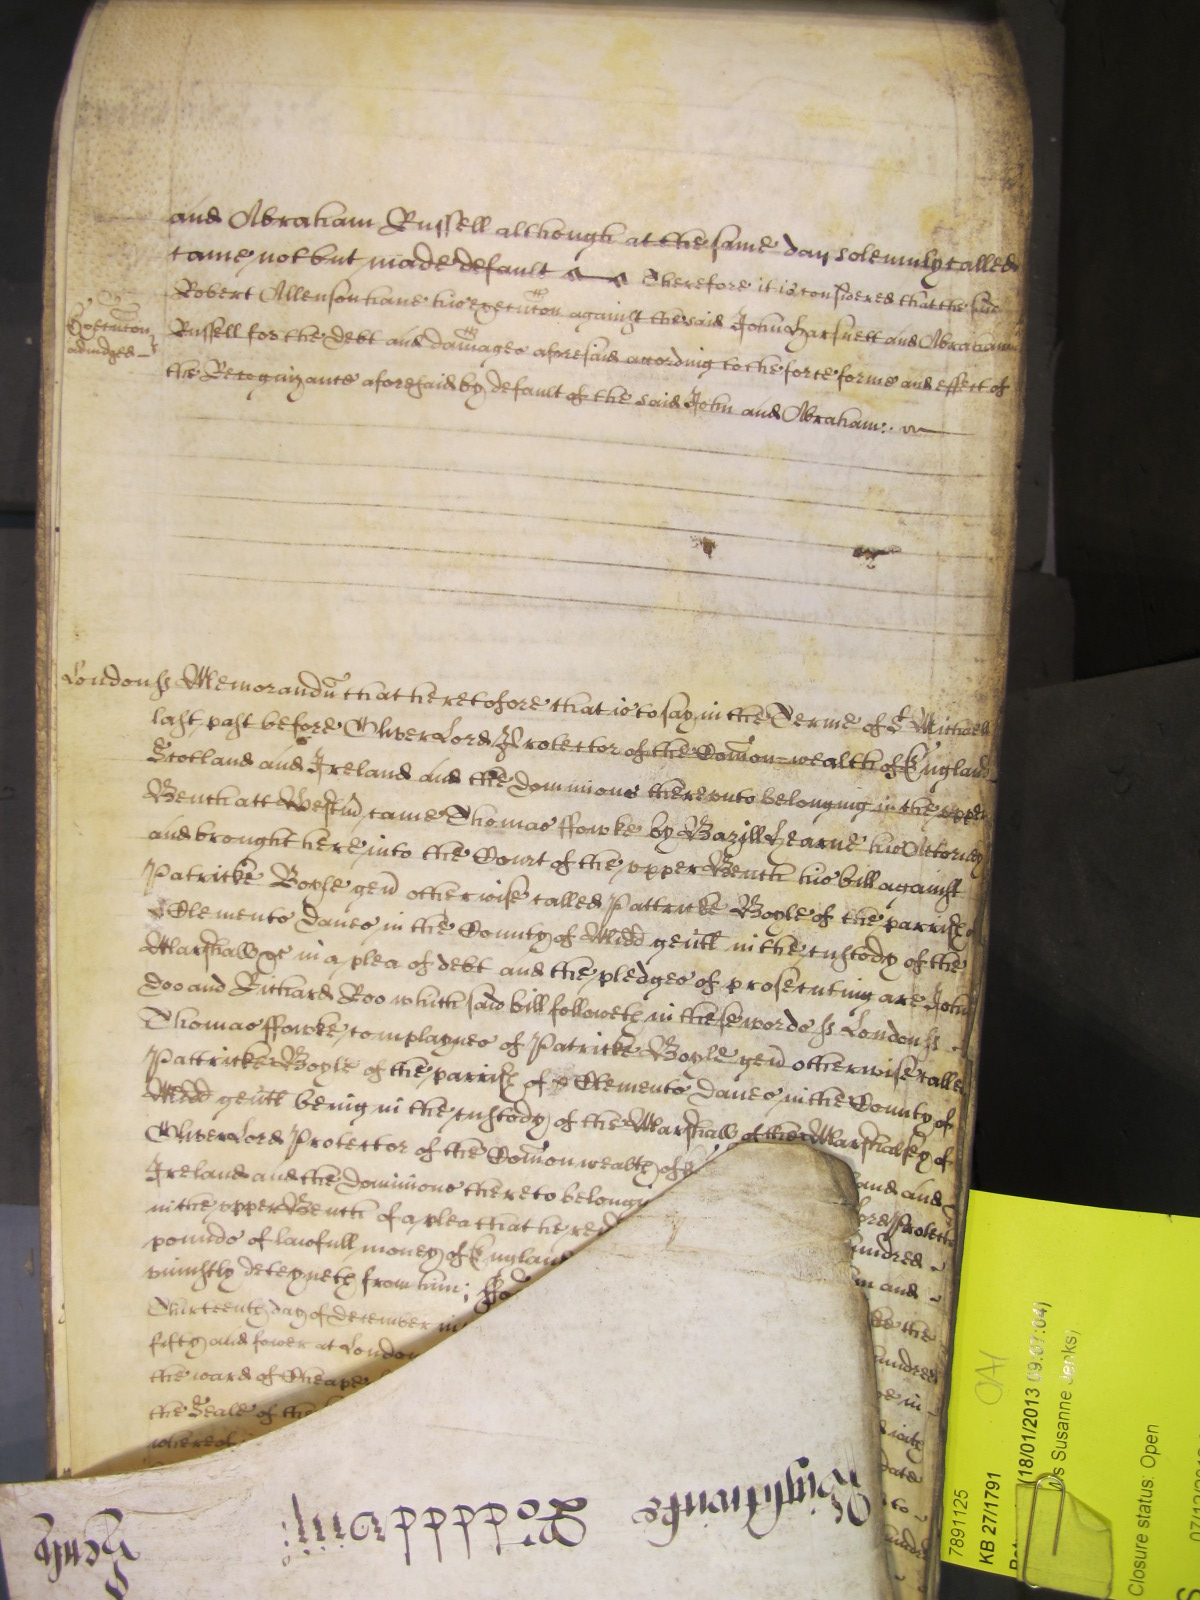 and Abraham Russell although at the same day solemnly called
came not but made default Therefore it is considered that the said
Robert Allenson have his execution against the said John Harsnett and Abraham
Execution
adiudged
Russell for the debt and damages aforesaid acording to the force forme and effect of
the Recognizance aforesaid by default of the said John and Abraham:
London ss Memorandu that heretofore that is to say in the Terme of St Michael
last past before Oliver Lord Protector of the Comon-wealth of England
Scotland and Ireland and the dominions thereunto belonging in the upper
Bench att Westm came Thomas ffowke by Bazill Hearne his Attorney
and brought here into the Court of the upper Bench his bill against
Patricke Boyle gen otherwise called Pattricke Boyle of the parrish of
Clements danes in the County of Midd gentl in the custody of the
Marshall &c in a plea of debt and the pledges of prosecuting are John
Doo and Richard Roo which said bill followeth in these words ss London ss
Thomas ffowke complaynes of Patricke Boyle gen otherwise called
Pattricke Boyle of the parrish of St Clements danes in the County of
Midd gentl being in the custody of the Marshall of the Marshalsey of
Oliver Lord Protector of the Comon wealth of
Ireland and the dominions thereto belong and and
in the upper Bench of a plea that he re ord Protector
pounds of lawfull money of England undred
uniustly deteyneth from him; ffo m and
Thirteenth day of december in the
fifty and fower at London undred
the ward of Cheape in
the Seale of the
whereof date
to
Henly
Roll
7891125
KB 27/1791
(18/01/2013 09:01:04)
s Susanne Jenks)
Closure status: Open